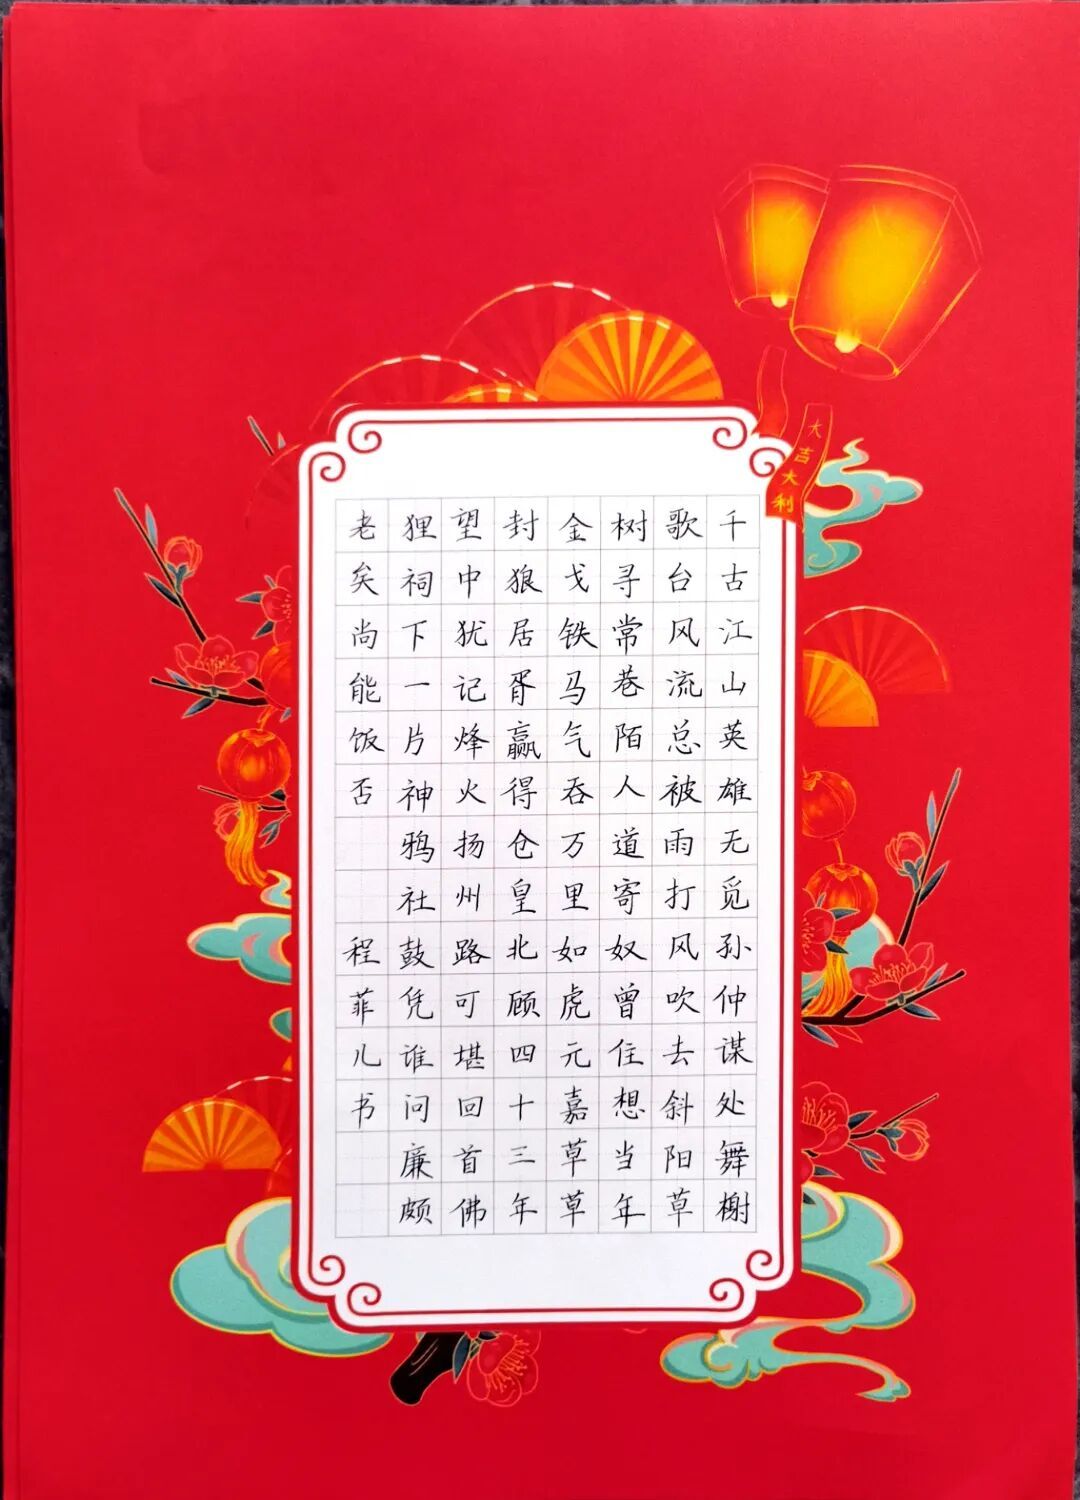 千古江山英雄无觅孙仲谋处舞榭
歌台风流总被雨打风吹去斜阳草
树寻常巷陌人道寄奴曾住想当年
金戈铁马气吞万里如虎元嘉草草
封狼居胥赢得仓皇北顾四十三年
望中犹记烽火扬州路可堪回首佛
狸祠下一片神鸦社鼓凭谁问廉颇
老矣尚能饭否 程菲儿书
大吉大利